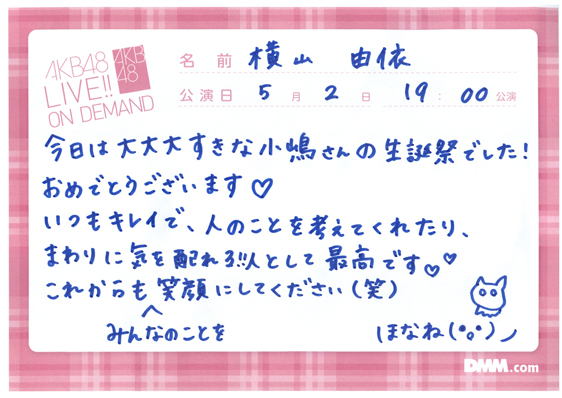 AKB48
LIVE!!
ON DEMAND
AKB
48
名前 横山 由依
公演日 5月2日 19:00公演
今日は大大大すきな小嶋さんの生誕祭でした!
おめでとうございます♡
いつもキレイで、人のことを考えてくれたり、
まわりに気を配れる!!人として最高です♡♡
これからも笑顔にしてください(笑)
みんなのことを
ほなね(°。°)ノ
DMM.com